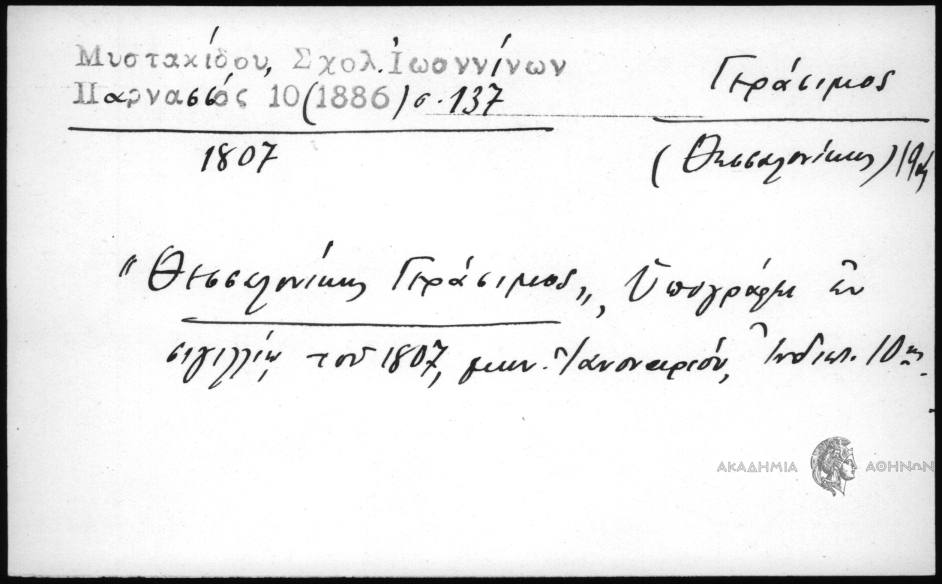 Μυστακίδου, Σχολ. Ἰωαννίνων
Παρνασσός 10 (1886) σ. 137
Γεράσιμος
1807
(Θεσσαλονίκης) 19ος
"Θεσσαλονίκης Γεράσιμος", ὑπογράφει ἐν
σιγιλλίῳ τοῦ 1807, μην. Ἰανουαρίου, Ἰνδικτ. 10ης.
ΑΚΑΔΗΜΙΑ ΑΘΗΝΩΝ